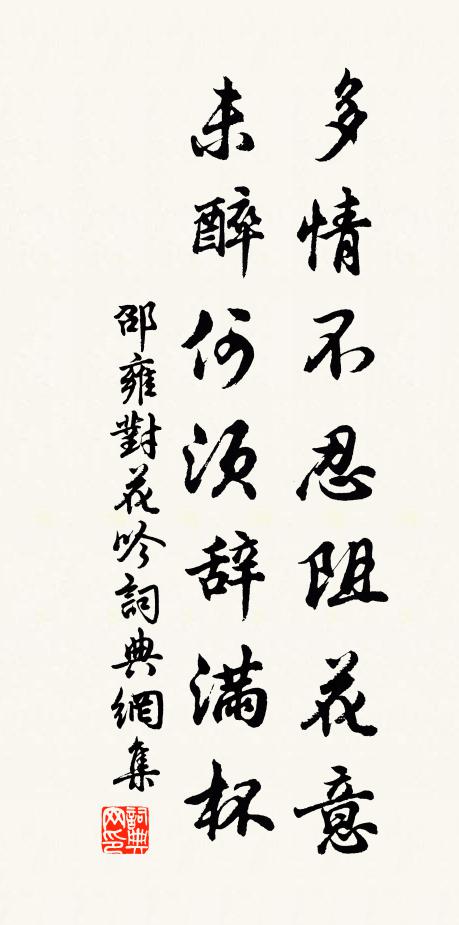 多情不忍阻花意
未醉何须辞满杯
邵雍對花吟詞典網集
詞典网印